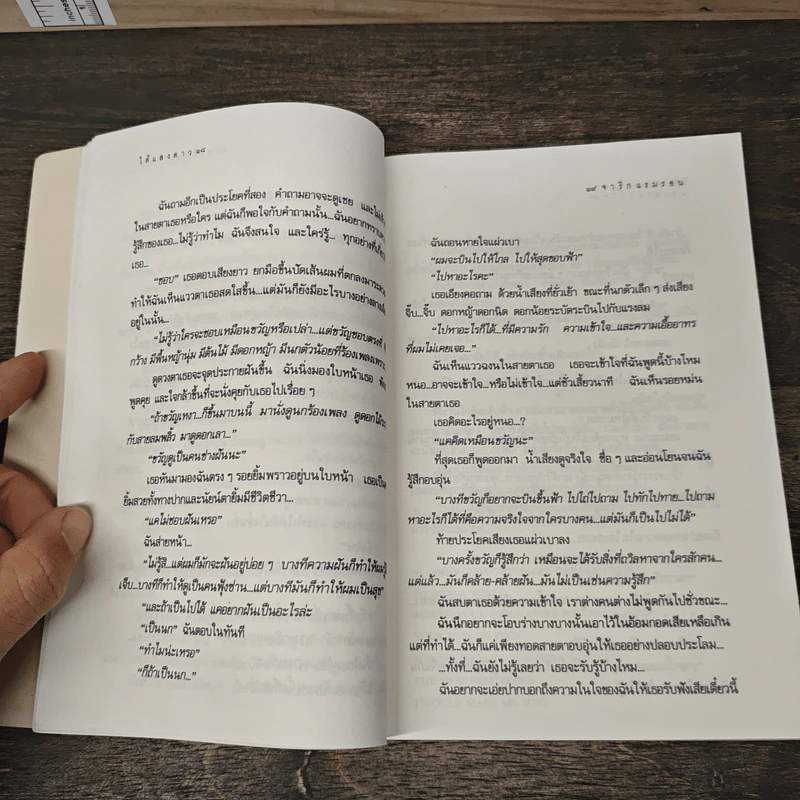 inches
1
ใต้แสงดาว ๒๘
ฉันถามอีกเป็นประโยคที่สอง คำถามอาจจะดูเชย และไม่
ในสายตาเธอหรือใคร แต่ฉันก็พอใจกับคำถามนั้น...ฉันอยากทราบ
รู้สึกของเธอ...ไม่รู้ว่าทำไม ฉันจึงสนใจ และใคร่รู้... ทุกอย่างที่
เธอ...
"ชอบ" เธอตอบเสียงยาว ยกมือขึ้นปัดเส้นผมที่ตกลงมาระ
ทำให้ฉันเห็นแววตาเธอสดใสขึ้น...แต่มันก็ยังมีอะไรบางอย่าง
อยู่ในนั้น...
"ไม่รู้ว่าใครจะชอบเหมือนขวัญหรือเปล่า...แต่ขวัญชอบตรงที่
กว้าง มีพื้นหญ้านุ่ม มีต้นไม้ มีดอกหญ้า มีนกตัวน้อยที่ร้องเพลงเพราะ
ดูดวงตาเธอจะจุดประกายฝันขึ้น ฉันนิ่งมองใบหน้าเธอ
พูดคุย และใจกล้าขึ้นที่จะนั่งคุยกับเธอไปเรื่อย ๆ
"ถ้าขวัญเหงา...ก็ขึ้นมาบนนี้ มานั่งดูนกร้องเพลง ดูดอกไม้
กับสายลมพลิ้ว มาดูดอกเลา..."
"ขวัญดูเป็นคนช่างฝันนะ"
เธอหันมามองฉันตรง ๆ รอยยิ้มพราวอยู่บนใบหน้า เธอเป็น
ยิ้มสวยทั้งทางปากและนัยน์ตายิ้มมีชีวิตชีวา...
"แคไม่ชอบฝันเหรอ"
ฉันส่ายหน้า...
"ไม่รู้สิ...แต่ผมก็มักจะฝันอยู่บ่อย ๆ บางทีความฝันก็ทำให้ผมรู้
เจ็บ...บางทีก็ทำให้ดูเป็นคนฟุ้งซ่าน...แต่บางทีมันก็ทำให้ผมเป็นสุข"
"และถ้าเป็นไปได้ แคอยากฝันเป็นอะไรล่ะ
"เป็นนก" ฉันตอบในทันที
"ทำไมน่ะเหรอ"
"ก็ถ้าเป็นนก..."
๒๙ จาริกแรมรอน
ฉันถอนหายใจแผ่วเบา
"ผมจะบินไปให้ไกล ไปให้สุดขอบฟ้า"
"ไปหาอะไรคะ"
เธอเอียงคอถาม ด้วยน้ำเสียงที่ยั่วเย้า ขณะที่นกตัวเล็ก ๆ ส่งเสียง
จิ๊บ...จิ๊บ ดอกหญ้าดอกนิด ดอกน้อยระบัดระบินไปกับแรงลม
"ไปหาอะไรก็ได้...ที่มีความรัก ความเข้าใจ...และความเอื้ออาทร
ที่ผมไม่เคยเจอ..."
ฉันเห็นแววฉงนในสายตาเธอ เธอจะเข้าใจที่ฉันพูดนี้บ้างไหม
หนอ...อาจจะเข้าใจ...หรือไม่เข้าใจ...แต่ชั่วเสี้ยวนาที ฉันเห็นรอยหม่น
ในสายตาเธอ
เธอคิดอะไรอยู่หนอ...?
"แคคิดเหมือนขวัญนะ"
ที่สุดเธอก็พูดออกมา น้ำเสียงดูจริงใจ ซื่อ ๆ และอ่อนโยนจนฉัน
รู้สึกอบอุ่น
"บางทีขวัญก็อยากจะบินขึ้นฟ้า ไปไถ่ไปถาม ไปทักไปทาย...ไปถาม
หาอะไรก็ได้ที่คือความจริงใจจากใครบางคน...แต่มันก็เป็นไปไม่ได้"
ท้ายประโยคเสียงเธอแผ่วเบาลง
"บางครั้งขวัญก็รู้สึกว่า เหมือนจะได้รับสิ่งที่ถวิลหาจากใครสักคน...
แต่แล้ว...มันก็คล้าย-คล้ายฝัน...มันไม่เป็นเช่นความรู้สึก"
ฉันสบตาเธอด้วยความเข้าใจ เราต่างคนต่างไม่พูดกันไปชั่วขณะ...
ฉันนึกอยากจะโอบร่างบางบางนั้นเอาไว้ในอ้อมกอดเสียเหลือเกิน
แต่ที่ทำได้...ฉันก็แค่เพียงทอดสายตาอบอุ่นให้เธออย่างปลอบประโลม...
...ทั้งที่...ฉันยังไม่รู้เลยว่า เธอจะรับรู้บ้างไหม...
ฉันอยากจะเอ่ยปากบอกถึงความในใจของฉันให้เธอรับฟังเสียเดี๋ยวนี้